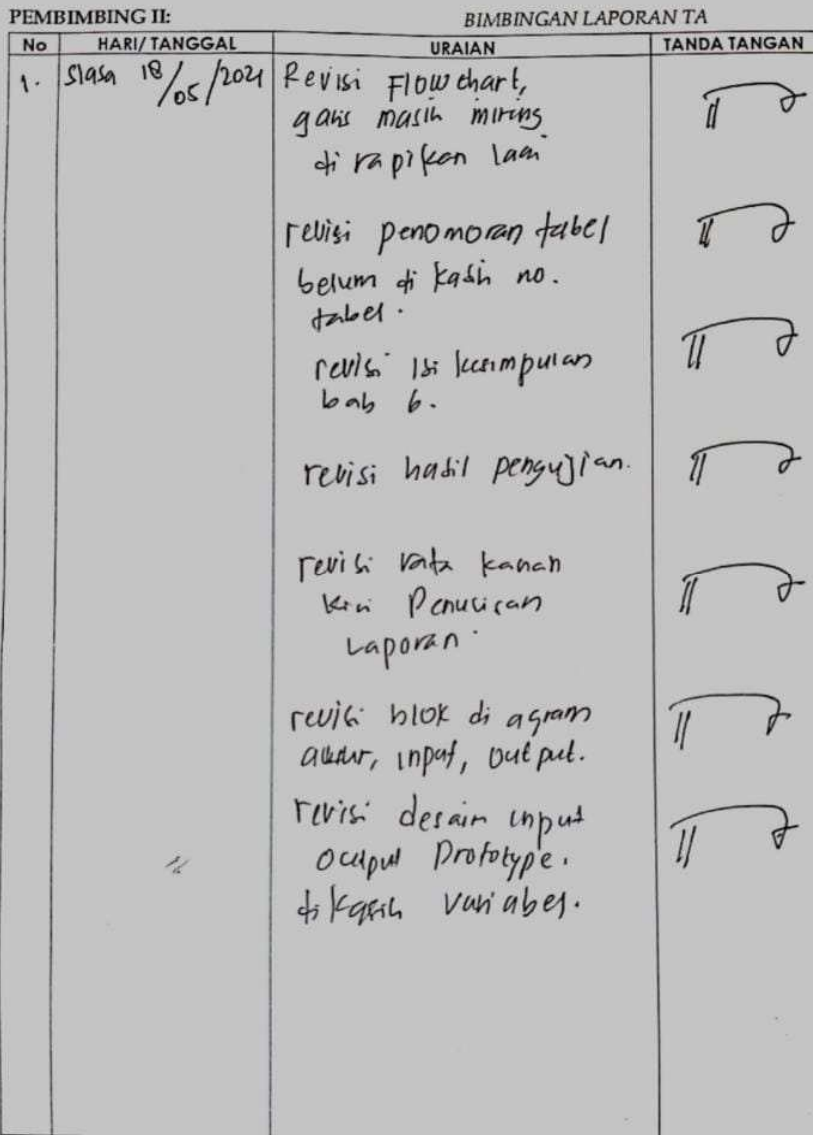 PEMBIMBING II: BIMBINGAN LAPORAN TA
No HARI/TANGGAL URAIAN TANDA TANGAN
1. Slasa 18/05/2021 Revisi Flowchart,
garis masih miring
di rapikan lagi
revisi penomoran tabel
belum di kasih no.
tabel.
revisi isi kesimpulan
bab 6.
revisi hasil pengujian.
revisi rata kanan
kiri Penulisan
Laporan
revisi blok di agram
input, output.
revisi desain input
output Prototype.
di kasih variabel.